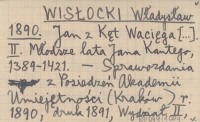 WISŁOCKI Władysław
1890. Jan z Kęt Wacięga [...].
II. Młodsze lata Jana Kantego,
1389-1421. — Sprawozdania
z Posiedzeń Akademii
Umiejętności (Kraków) r.
1890, druk 1891, Wydział II,